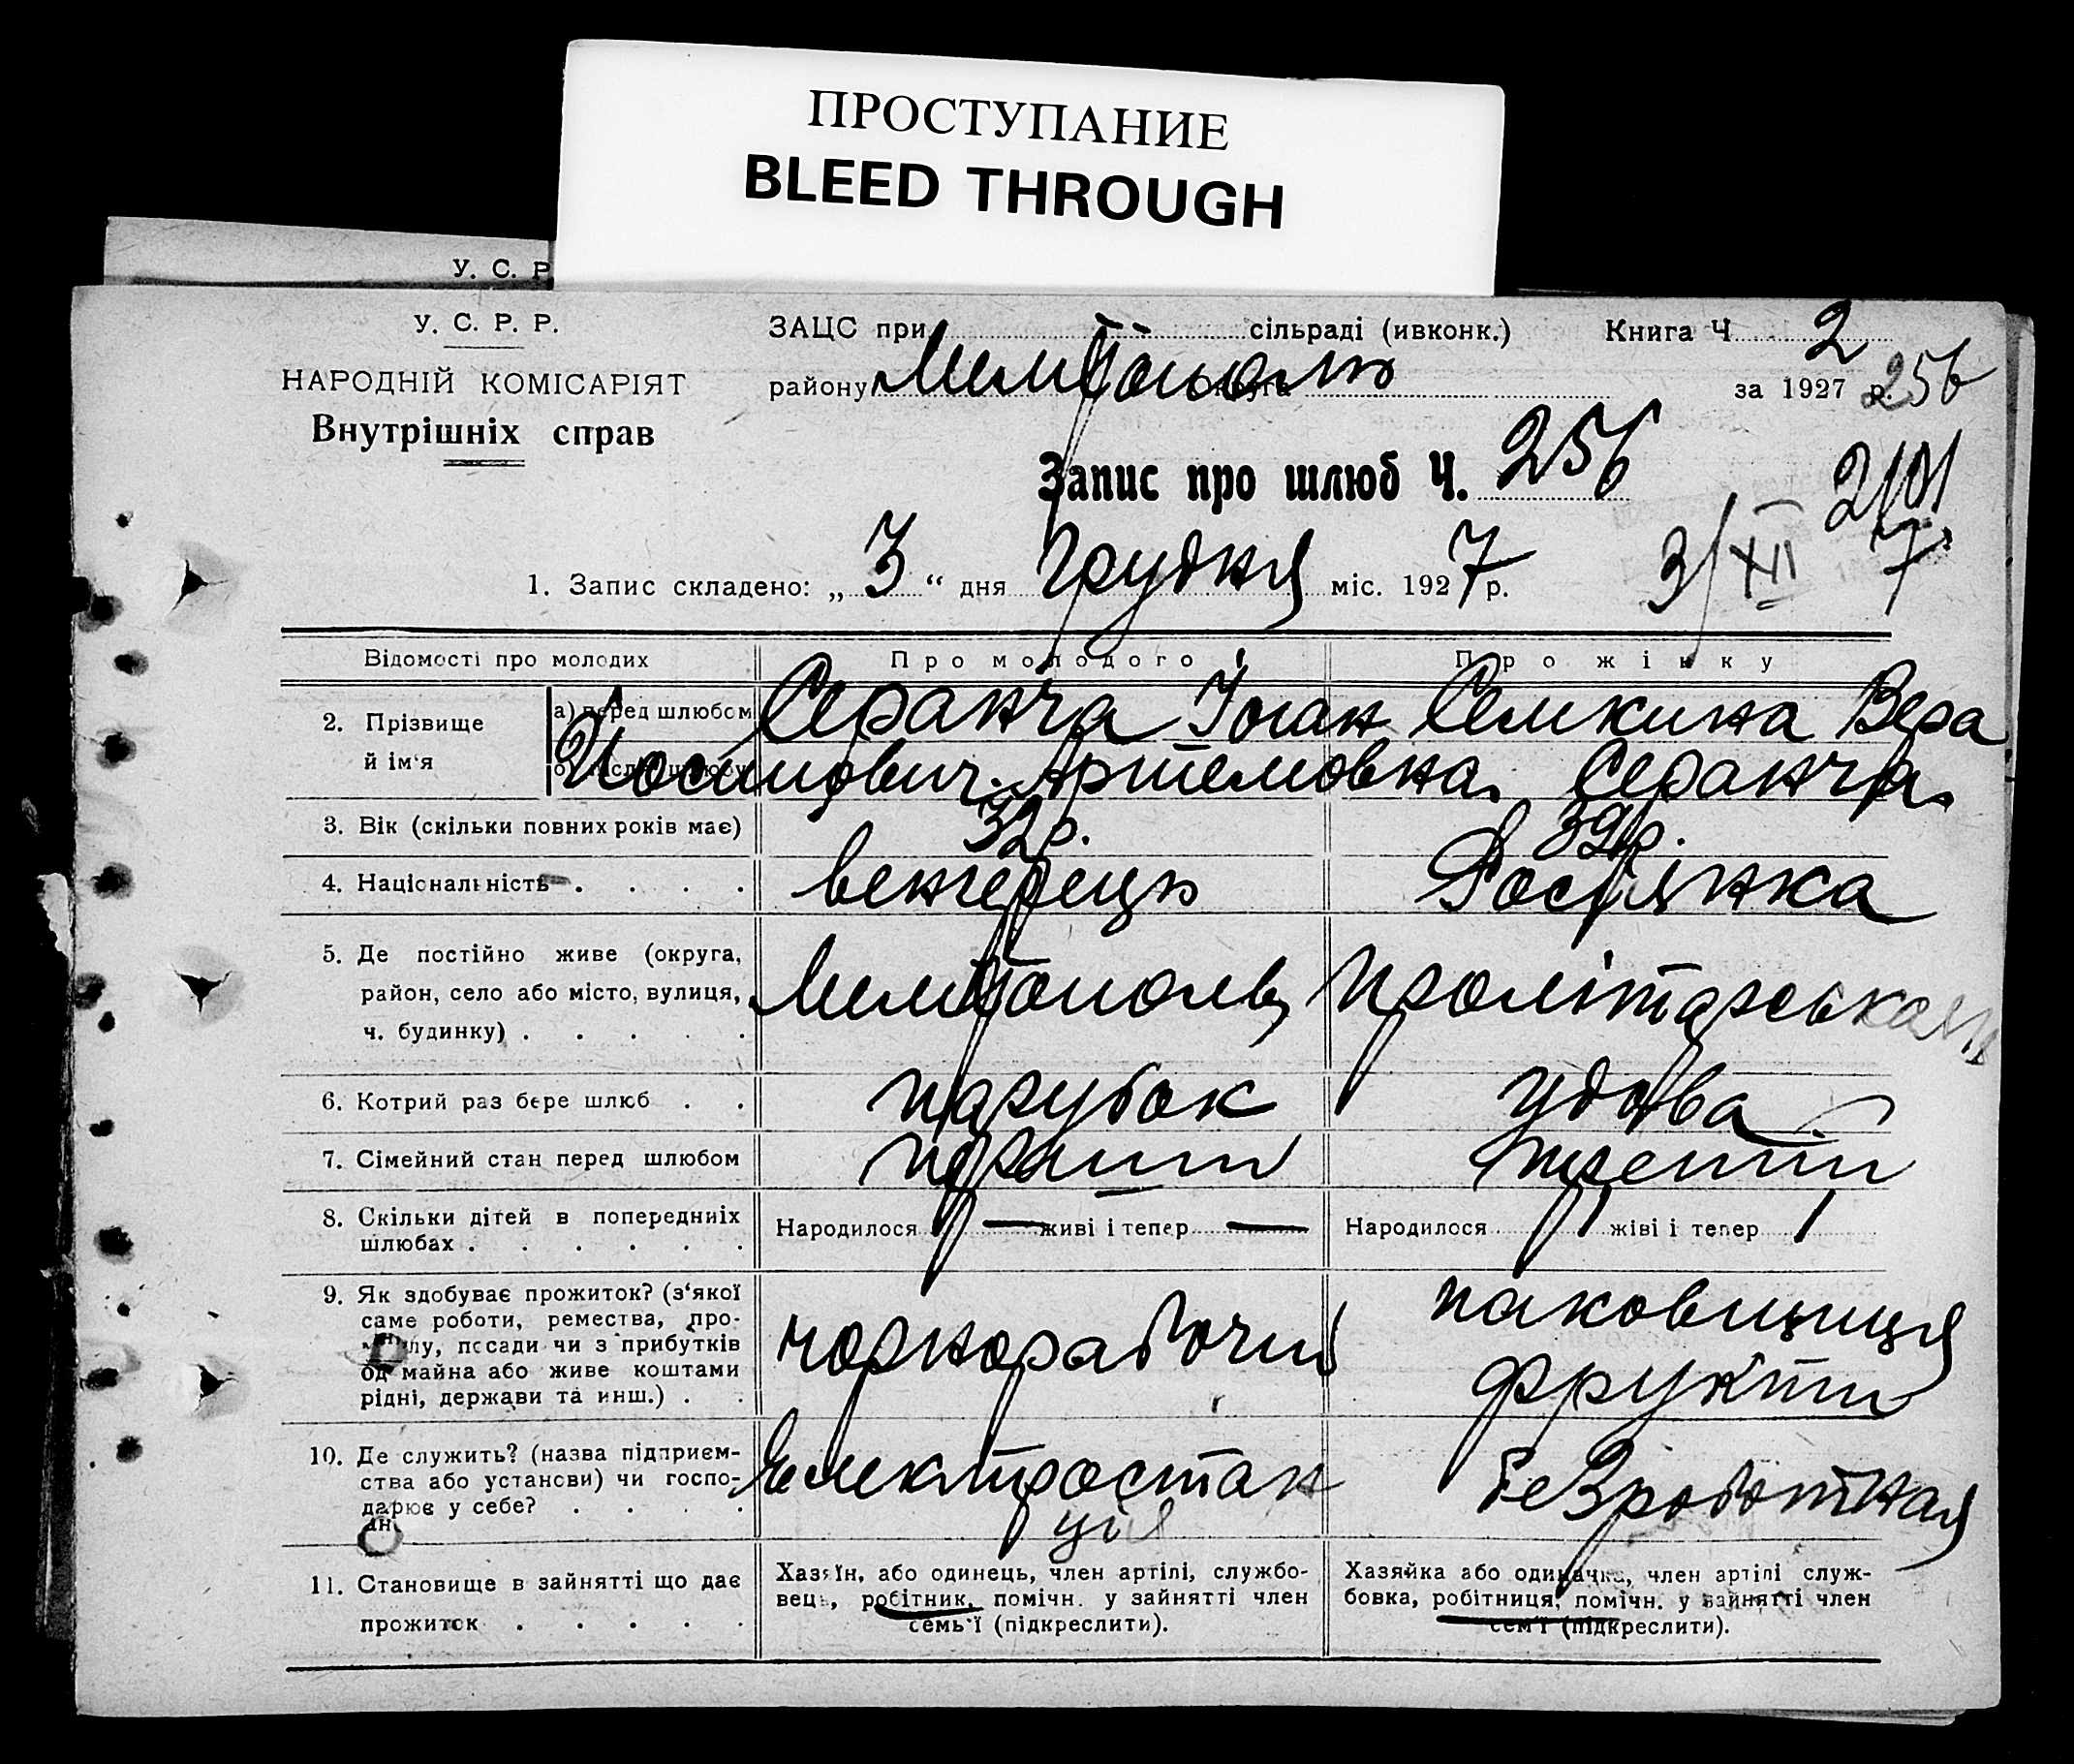 ПРОСТУПАНИЕ
BLEED THROUGH
У. С. Р
У. С. Р. Р.
НАРОДНІЙ КОМІСАРІЯТ
Внутрішніх справ
ЗАЦС при сільраді (ивконк.) Книга Ч 2
району Мелітополь округа за 1927 р. 256
Запис про шлюб Ч. 256
1. Запис складено: „ 3 “ дня Грудня міс. 1927 р. 3/XII 7
Відомості про молодих Про молодого Про жінку
2. Прізвище й ім‘я а) перед шлюбом Серанча Іоган Семкина Вера
Иосипович Артемовна. Серанча.
3. Вік (скільки повних років має) 32 р. 39 р.
4. Національність . . . . венгерець Росіянка
5. Де постійно живе (округа,
район, село або місто, вулиця, Мелітополь Пролітарська
ч. будинку) . . . . .
6. Котрий раз бере шлюб . . парубок удова
7. Сімейний стан перед шлюбом перший третій
8. Скільки дітей в попередниіх
шлюбах . . . . . . Народилося — живі і тепер — Народилося 1 жіві і тепер 1
9. Як здобуває прожиток? (з‘якої
саме роботи, ремества, про-
лу, посади чи з прибутків
од майна або живе коштами
рідні, держави та инш.) . . чорнорабочий паковщиця фрукти
10. Де служить? (назва підприєм-
ства або установи) чи госпо-
дарює у себе? . . . . Електростан
ція безроботная
11. Становище в зайнятті що дає
прожиток . . . . .
Хазяїн, або одинець, член артілі, службо-
вець, робітник, помічн. у зайнятті член
семь‘ї (підкреслити).
Хазяйка або одиначка, член артілі служ-
бовка, робітниця, помічн. у зайнятті член
сем‘ї (підкреслити).